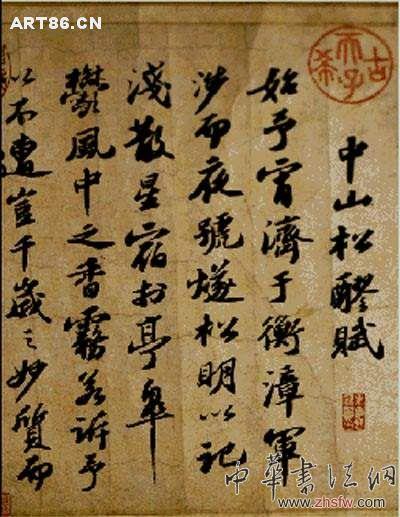 ART86.CN
古希天子
中山松醪賦
始予宵濟于衡漳軍
涉而夜號燧松明以記
淺散星宿於亭皋
鬱風中之香霧若訴予
以不遭豈千歲之妙質而
中華書法网
www.zhsfw.com